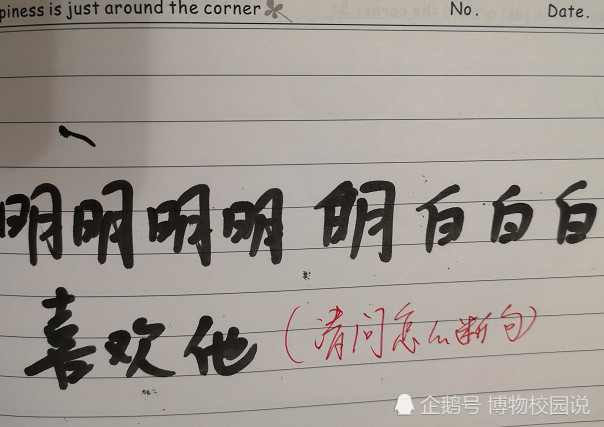 piness is just around the corner No. Date.
明明明明明白白白
喜欢他(请问怎么断句)
企鹅号 博物校园说